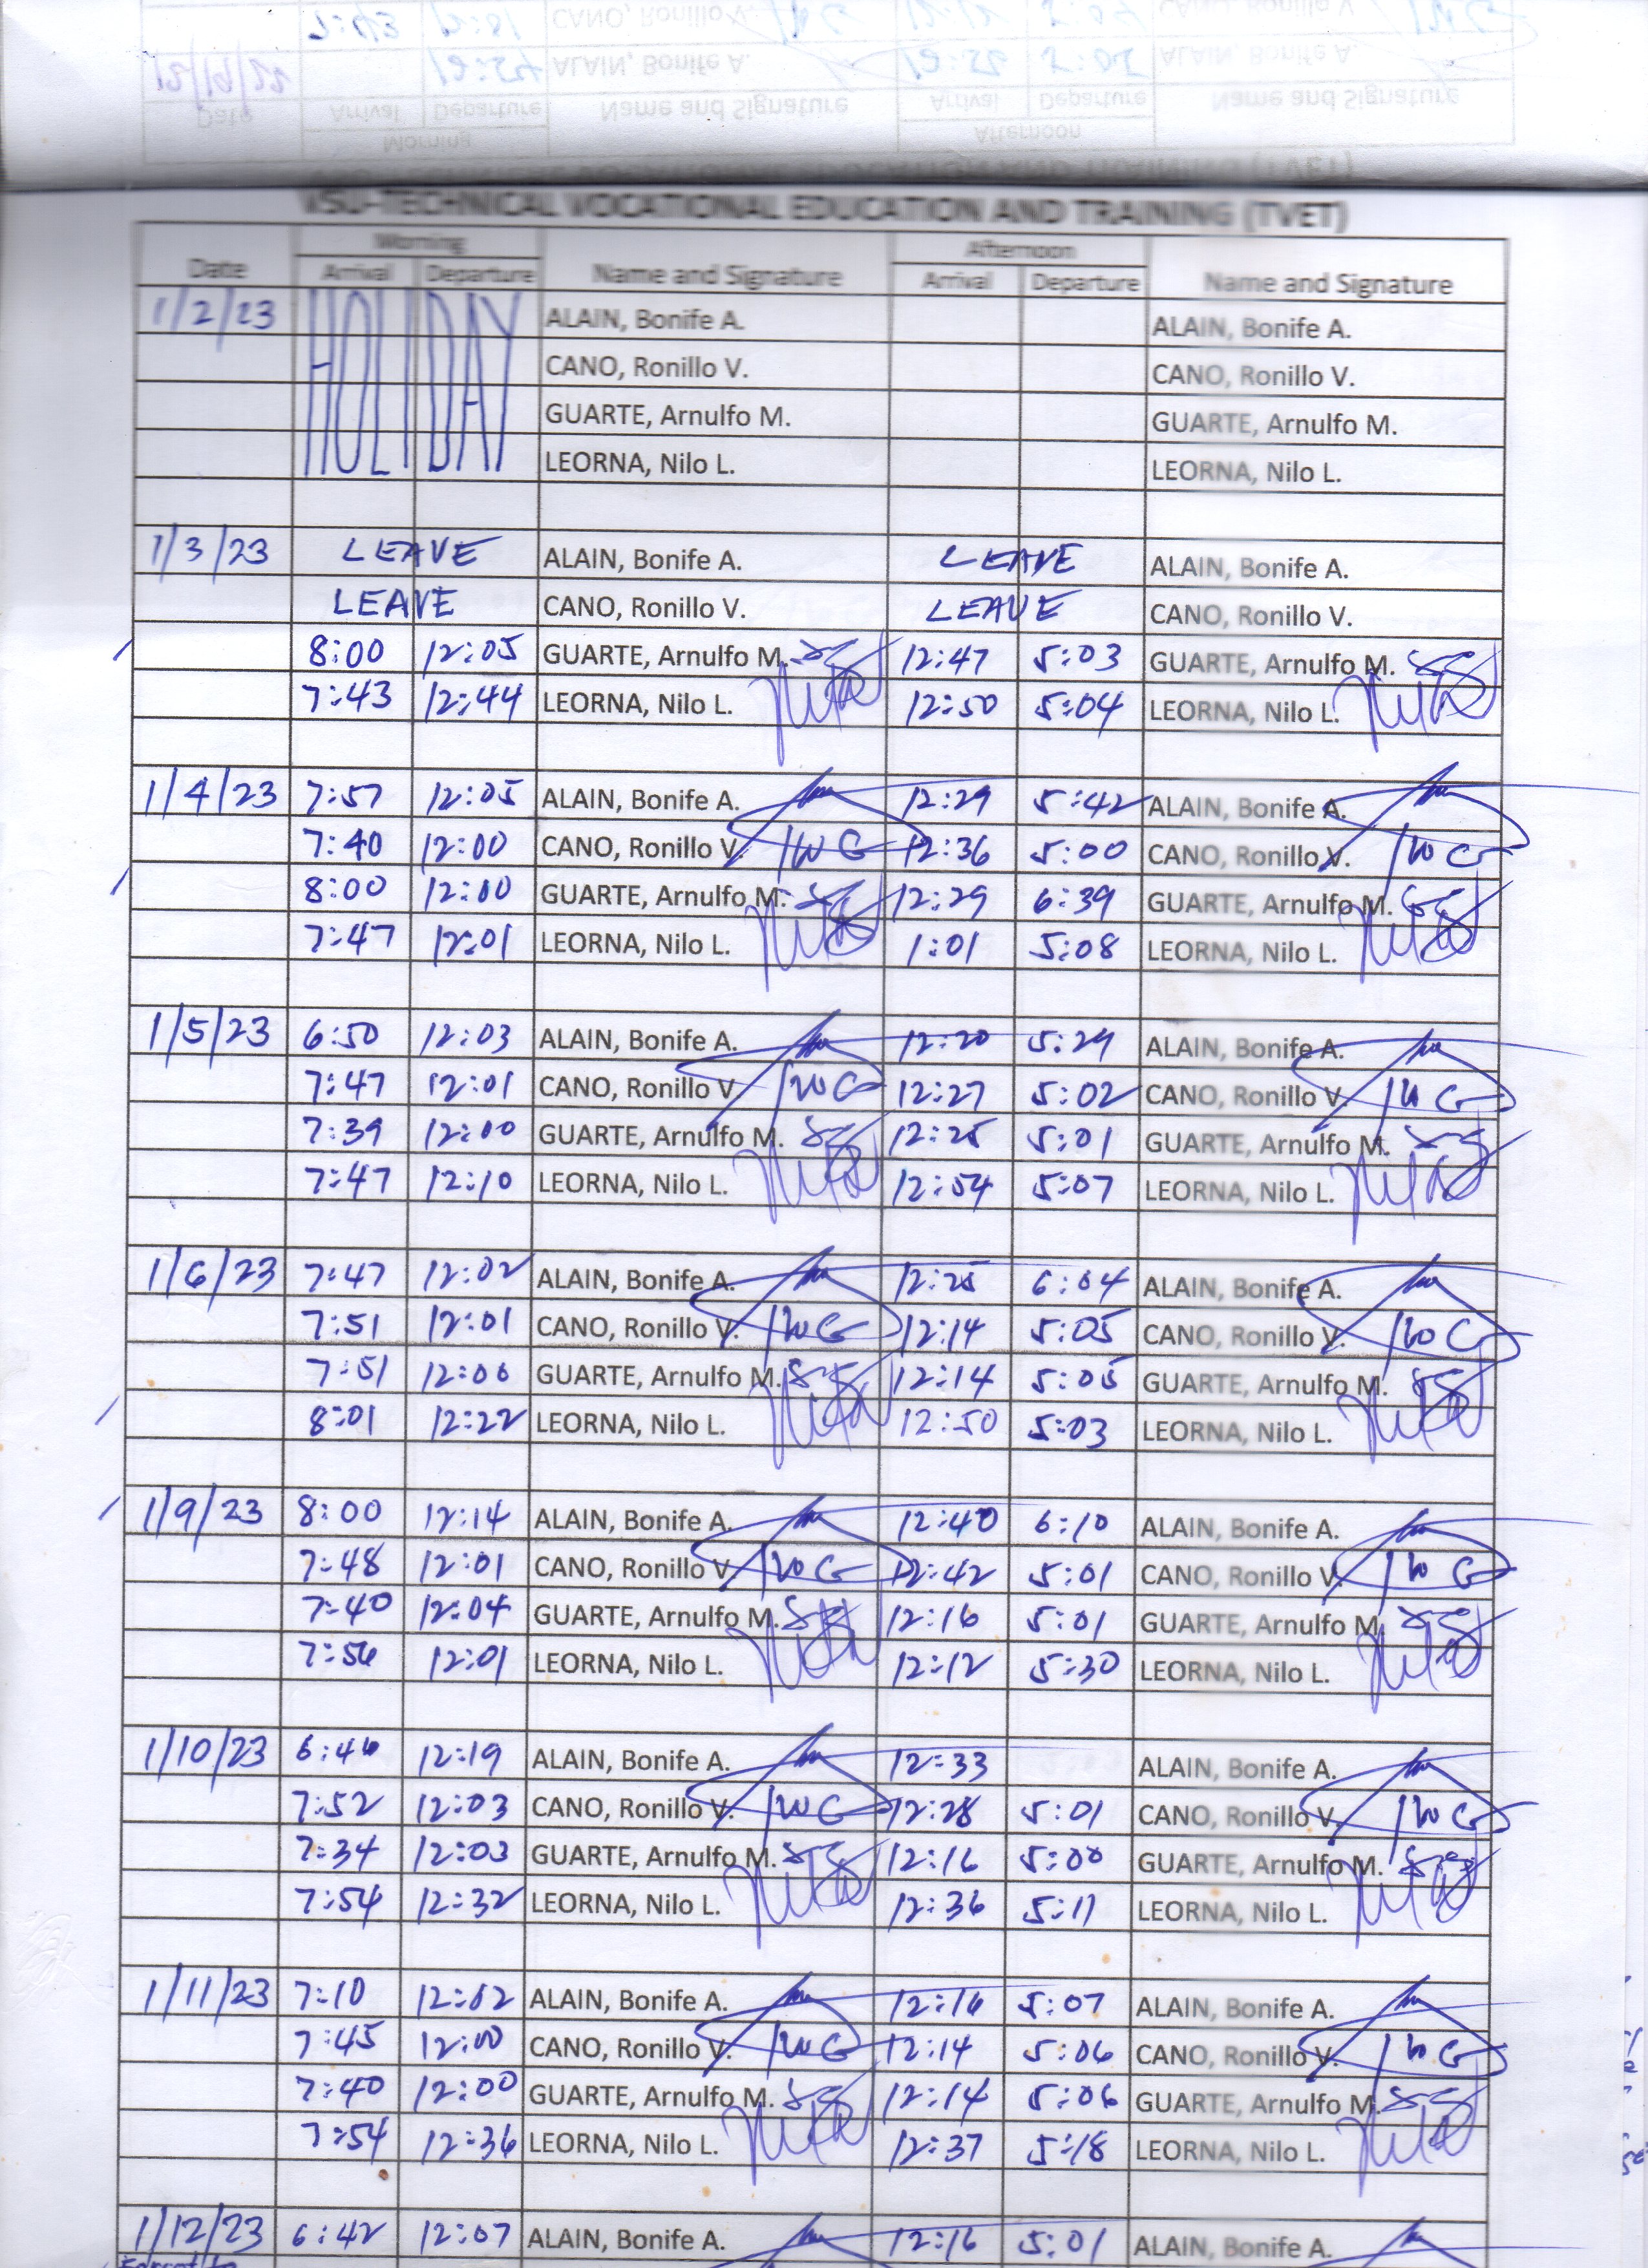 VSU-TECHNICAL VOCATIONAL EDUCATION AND TRAINING (TVET)
Morning Afternoon
Date Arrival Departure Name and Signature Arrival Departure Name and Signature
1/2/23 HOLIDAY ALAIN, Bonife A. ALAIN, Bonife A.
CANO, Ronillo V. CANO, Ronillo V.
GUARTE, Arnulfo M. GUARTE, Arnulfo M.
LEORNA, Nilo L. LEORNA, Nilo L.
1/3/23 LEAVE ALAIN, Bonife A. LEAVE ALAIN, Bonife A.
LEAVE CANO, Ronillo V. LEAVE CANO, Ronillo V.
8:00 12:05 GUARTE, Arnulfo M. 12:47 5:03 GUARTE, Arnulfo M.
7:43 12:44 LEORNA, Nilo L. 12:50 5:04 LEORNA, Nilo L.
1/4/23 7:57 12:05 ALAIN, Bonife A. 12:29 5:42 ALAIN, Bonife A.
7:40 12:00 CANO, Ronillo V. 12:36 5:00 CANO, Ronillo V.
8:00 12:00 GUARTE, Arnulfo M. 12:29 6:39 GUARTE, Arnulfo M.
7:47 12:01 LEORNA, Nilo L. 1:01 5:08 LEORNA, Nilo L.
1/5/23 6:50 12:03 ALAIN, Bonife A. 12:20 5:29 ALAIN, Bonife A.
7:47 12:01 CANO, Ronillo V. 12:27 5:02 CANO, Ronillo V.
7:39 12:00 GUARTE, Arnulfo M. 12:25 5:01 GUARTE, Arnulfo M.
7:47 12:10 LEORNA, Nilo L. 12:54 5:07 LEORNA, Nilo L.
1/6/23 7:47 12:02 ALAIN, Bonife A. 12:25 6:04 ALAIN, Bonife A.
7:51 12:01 CANO, Ronillo V. 12:14 5:05 CANO, Ronillo V.
7:51 12:00 GUARTE, Arnulfo M. 12:14 5:05 GUARTE, Arnulfo M.
8:01 12:22 LEORNA, Nilo L. 12:50 5:03 LEORNA, Nilo L.
1/9/23 8:00 12:14 ALAIN, Bonife A. 12:40 6:10 ALAIN, Bonife A.
7:48 12:01 CANO, Ronillo V. 12:42 5:01 CANO, Ronillo V.
7:40 12:04 GUARTE, Arnulfo M. 12:16 5:01 GUARTE, Arnulfo M.
7:56 12:01 LEORNA, Nilo L. 12:12 5:30 LEORNA, Nilo L.
1/10/23 6:46 12:19 ALAIN, Bonife A. 12:33 ALAIN, Bonife A.
7:52 12:03 CANO, Ronillo V. 12:28 5:01 CANO, Ronillo V.
7:34 12:03 GUARTE, Arnulfo M. 12:16 5:00 GUARTE, Arnulfo M.
7:54 12:32 LEORNA, Nilo L. 12:36 5:11 LEORNA, Nilo L.
1/11/23 7:10 12:02 ALAIN, Bonife A. 12:16 5:07 ALAIN, Bonife A.
7:45 12:00 CANO, Ronillo V. 12:14 5:06 CANO, Ronillo V.
7:40 12:00 GUARTE, Arnulfo M. 12:14 5:06 GUARTE, Arnulfo M.
7:54 12:36 LEORNA, Nilo L. 12:37 5:18 LEORNA, Nilo L.
1/12/23 6:42 12:07 ALAIN, Bonife A. 12:16 5:01 ALAIN, Bonife A.